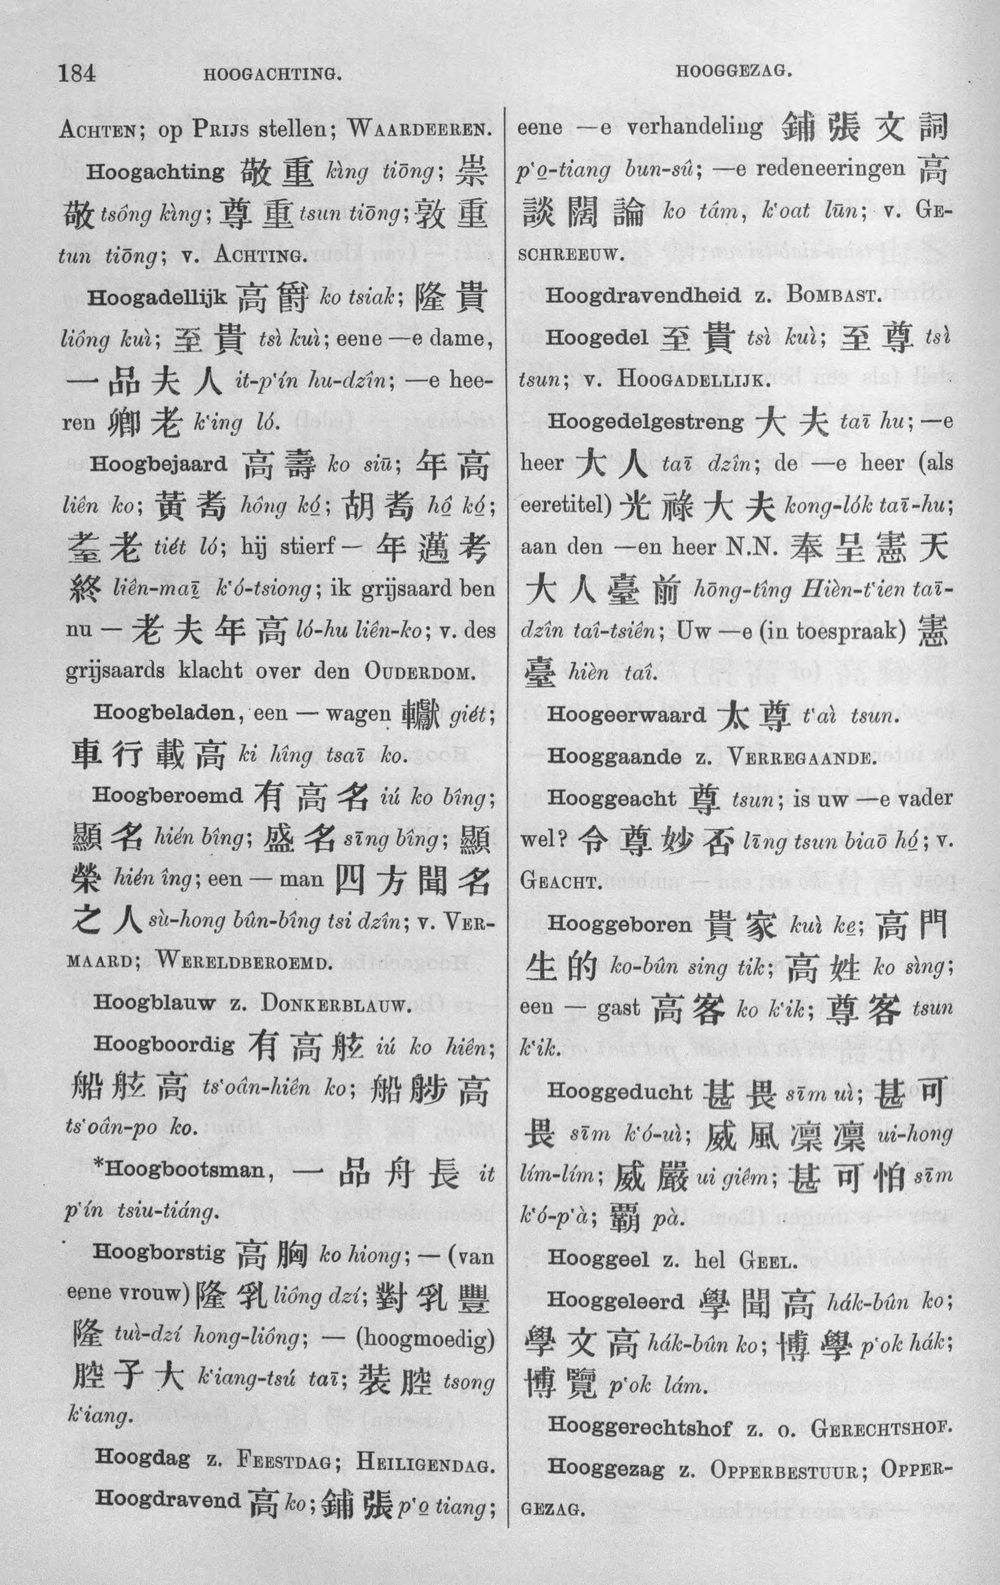 184
HOOGACHTING.
HOOGGEZAG.
ACHTEN; op PRIJS stellen; WAARDEEREN.
Hoogachting 敬重 kìng tiōng; 崇
敬 tsông kìng; 尊重 tsun tiōng; 敦重
tun tiōng; v. ACHTING.
Hoogadellijk 高爵 ko tsiak; 隆貴
liông kuì; 至貴 tsì kuì; eene —e dame,
一品夫人 it-p'ín hu-dzîn; —e hee-
ren 卿老 k'ing ló.
Hoogbejaard 高壽 ko siū; 年高
liên ko; 黃耇 hông kó; 胡耇 hô kó;
耋老 tiét ló; hij stierf — 年邁考
終 liên-maī k'ó-tsiong; ik grijsaard ben
nu — 老夫年高 ló-hu liên-ko; v. des
grijsaards klacht over den OUDERDOM.
Hoogbeladen, een — wagen 轍 giét;
車行載高 ki hîng tsaī ko.
Hoogberoemd 有高名 iú ko bîng;
顯名 hién bîng; 盛名 sīng bîng; 顯
榮 hién îng; een — man 四方聞名
之人 sù-hong bûn-bîng tsi dzîn; v. VER-
MAARD; WERELDBEROEMD.
Hoogblauw z. DONKERBLAUW.
Hoogboordig 有高舷 iú ko hiên;
船舷高 ts'oân-hiên ko; 船䑰高
ts'oân-po ko.
*Hoogbootsman, 一品舟長 it
p'ín tsiu-tiáng.
Hoogborstig 高胸 ko hiong; — (van
eene vrouw) 隆乳 liông dzí; 對乳豐
隆 tuì-dzí hong-liông; — (hoogmoedig)
腔子大 k'iang-tsú taī; 裝腔 tsong
k'iang.
Hoogdag z. FEESTDAG; HEILIGENDAG.
Hoogdravend 高 ko; 鋪張 p'o tiang;
eene —e verhandeling 鋪張文詞
p'o-tiang bun-sû; —e redeneeringen 高
談闊論 ko tâm, k'oat lūn; v. GE-
SCHREEUW.
Hoogdravendheid z. BOMBAST.
Hoogedel 至貴 tsì kuì; 至尊 tsì
tsun; v. HOOGADELLIJK.
Hoogedelgestreng 大夫 taī hu; —e
heer 大人 taī dzîn; de —e heer (als
eeretitel) 光祿大夫 kong-lók taī-hu;
aan den —en heer N.N. 奉呈憲天
大人臺前 hōng-tîng Hièn-t'ien taī-
dzîn taî-tsiên; Uw —e (in toespraak) 憲
臺 hièn taî.
Hoogeerwaard 太尊 t'aì tsun.
Hooggaande z. VERREGAANDE.
Hooggeacht 尊 tsun; is uw —e vader
wel? 令尊妙否 līng tsun biaō hó; v.
GEACHT.
Hooggeboren 貴家 kuì ke; 高門
生的 ko-bûn sing tik; 高姓 ko sìng;
een — gast 高客 ko k'ik; 尊客 tsun
k'ik.
Hooggeducht 甚畏 sīm uì; 甚可
畏 sīm k'ó-uì; 威風凜凜 ui-hong
lím-lím; 威嚴 ui giêm; 甚可怕 sīm
k'ó-p'à; 霸 pà.
Hooggeel z. hel GEEL.
Hooggeleerd 學聞高 hák-bûn ko;
學文高 hák-bûn ko; 博學 p'ok hák;
博覽 p'ok lám.
Hooggerechtshof z. o. GERECHTSHOF.
Hooggezag z. OPPERBESTUUR; OPPER-
GEZAG.